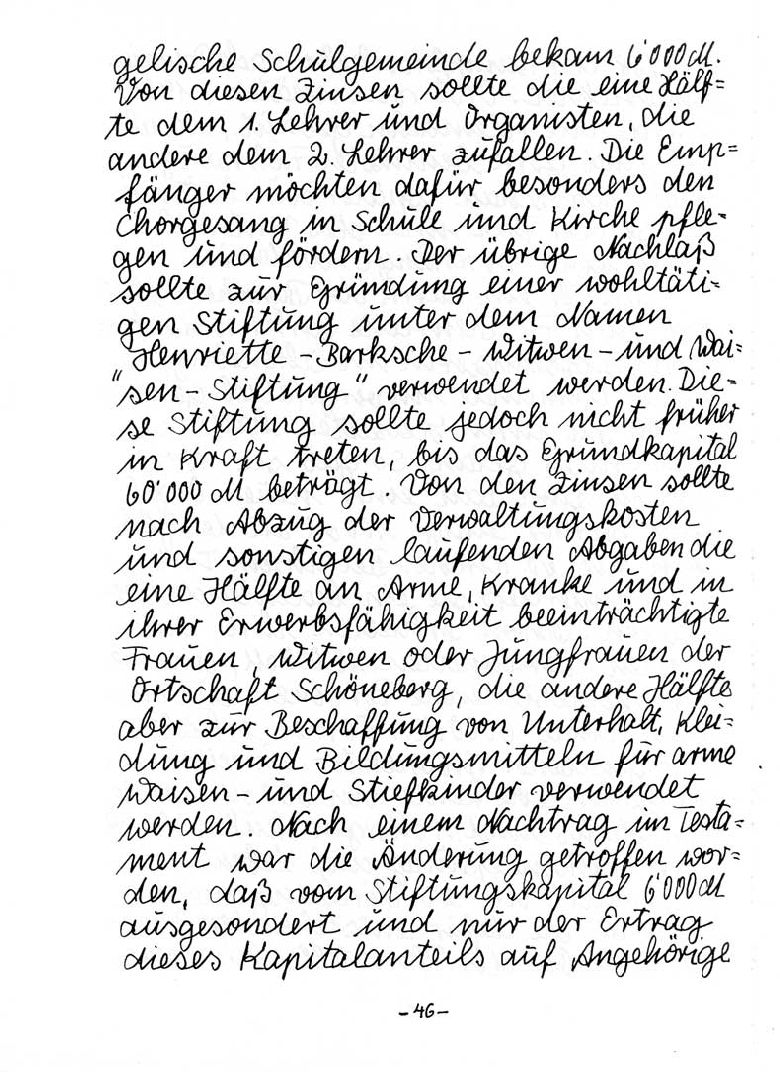 gelische Schulgemeinde bekam 6'000 M.
Von diesen Zinsen sollte die eine Hälf=
te dem 1. Lehrer und Organisten, die
andere dem 2. Lehrer zufallen. Die Emp=
fänger möchten dafür besonders den
Chorgesang in Schule und Kirche pfle-
gen und fördern. Der übrige Nachlaß
sollte zur Gründung einer wohltäti=
gen Stiftung unter dem Namen
"Henriette - Barksche - Witwen - und Wai=
sen - Stiftung" verwendet werden. Die-
se Stiftung sollte jedoch nicht früher
in Kraft treten, bis das Grundkapital
60'000 M beträgt. Von den Zinsen sollte
nach Abzug der Verwaltungskosten
und sonstigen laufenden Abgaben die
eine Hälfte an Arme, Kranke und in
ihrer Erwerbsfähigkeit beeinträchtigte
Frauen, Witwen oder Jungfrauen der
Ortschaft Schöneberg, die andere Hälfte
aber zur Beschaffung von Unterhalt, Klei=
dung und Bildungsmitteln für arme
Waisen - und Stiefkinder verwendet
werden. Nach einem Nachtrag im Testa=
ment war die Änderung getroffen wor=
den, daß vom Stiftungskapital 6'000 M
ausgesondert und nur der Ertrag
dieses Kapitalanteils auf Angehörige
- 46 -